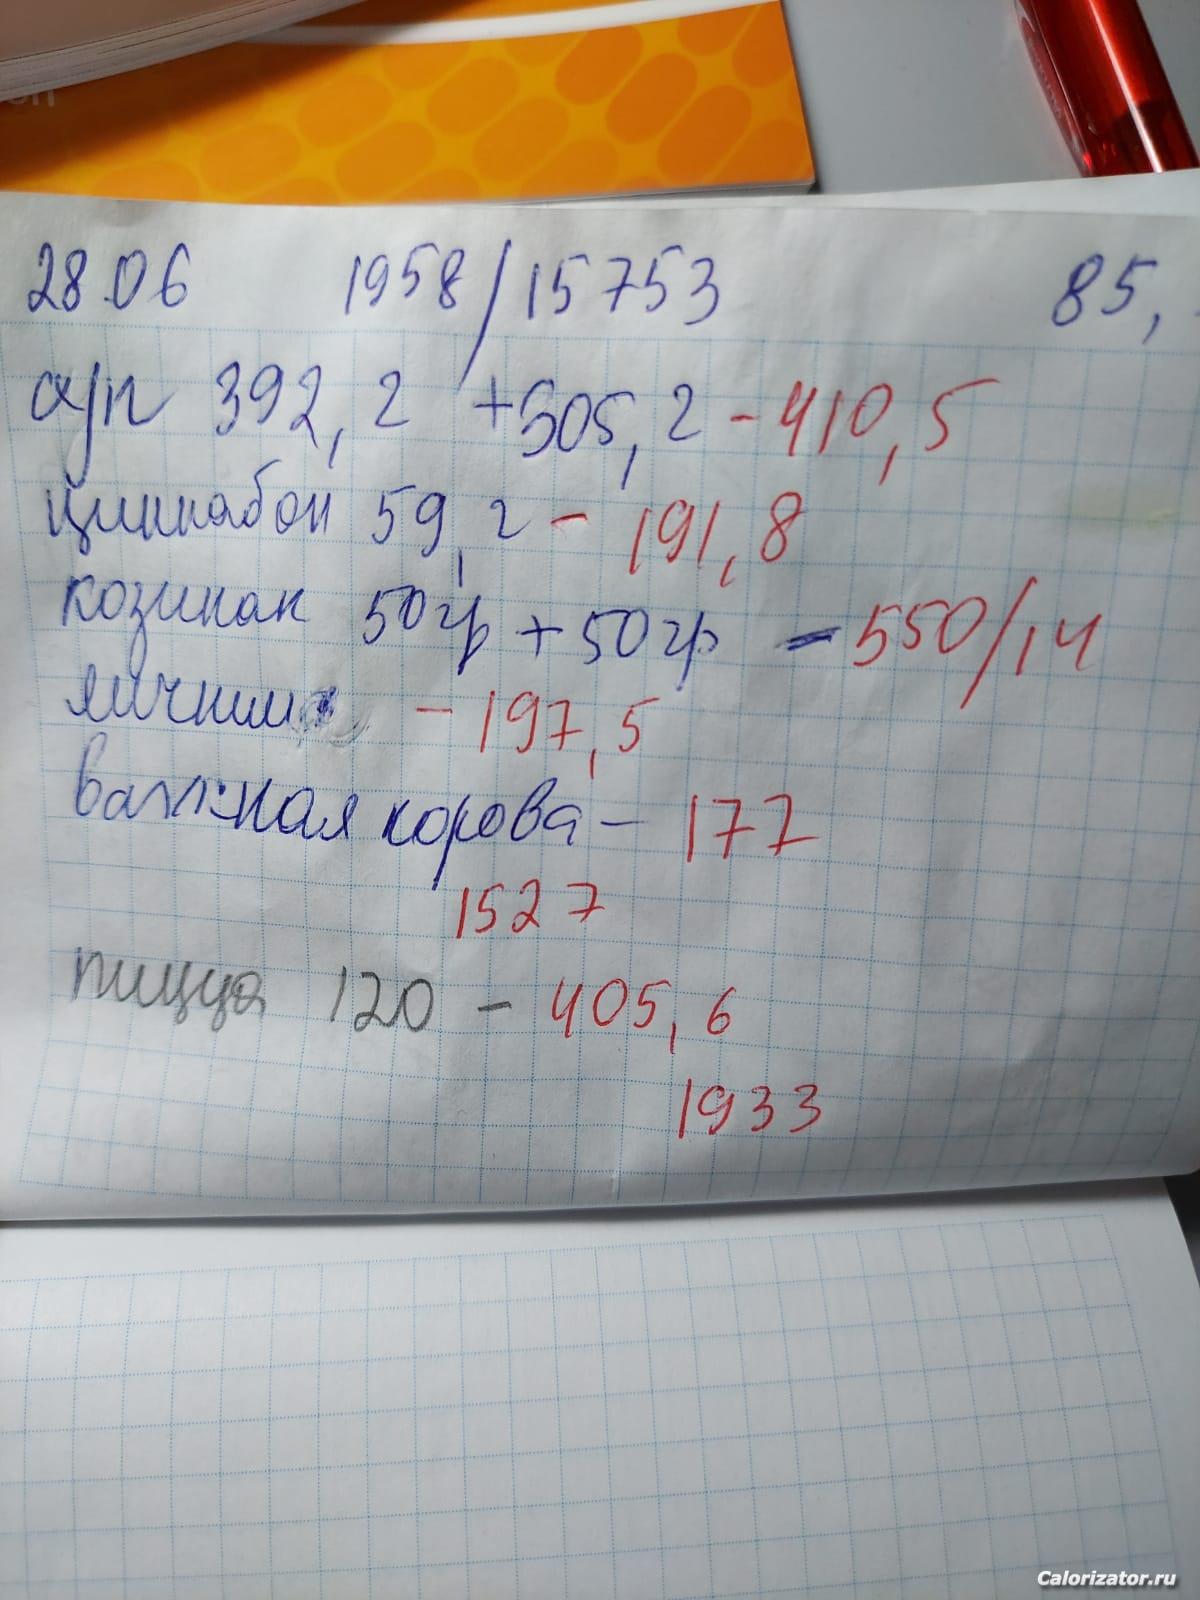 28.06 1958/15753 85,
а/п 392,2 +505,2 - 410,5
циннабон 59,2 - 191,8
козинак 50гр + 50гр - 550/14
яичниц - 197,5
важная корова - 177
1527
пицца 120 - 405,6
1933
Calorizator.ru